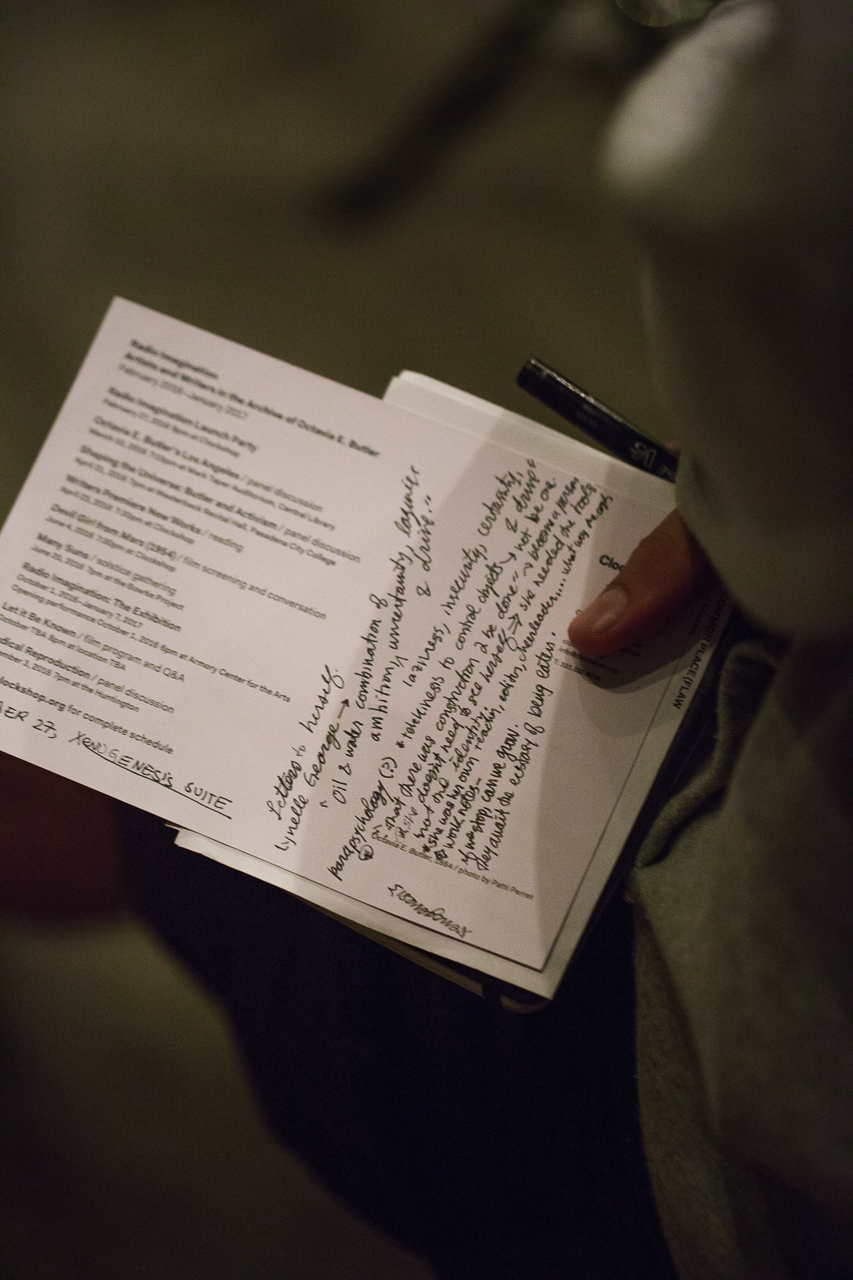 Radio Imagination
Artists and Writers in the Archive of Octavia E. Butler
February 2016–January 2017
Radio Imagination Launch Party
February 27, 2016 8pm at Clockshop
Octavia E. Butler's Los Angeles / panel discussion
March 10, 2016 7:15pm at Mark Taper Auditorium, Central Library
Shaping the Universe: Butler and Activism / panel discussion
April 21, 2016 7pm at Westerbeck Recital Hall, Pasadena City College
Writers Premiere New Works / reading
April 23, 2016 7:30pm at Clockshop
Devil Girl from Mars (1954) / film screening and conversation
June 4, 2016 7:30pm at Clockshop
Many Suns / solstice gathering
June 20, 2016 7pm at the Bowtie Project
Radio Imagination: The Exhibition
October 1, 2016–January 7, 2017
Opening performance October 1, 2016 6pm at Armory Center for the Arts
Let it Be Known / film program and Q&A
October TBA 8pm at location TBA
dical Reproduction / panel discussion
2016 7pm at the Huntington
lockshop.org for complete schedule
BER 27, XENOGENESIS SUITE
Letters to herself.
Lynelle George →
"Oil & water combination of
ambition, uncertainty,
& drive."
parapsychology (?) * telekinesis to control objects
laziness, insecurity, certainty, & drive"
that there was construction 2 be done"
* she doesn't need to see herself → she needed the
not the identity.
* she was her own reader, editor, cheerleader.... what
work notes-
If we stop, can we grow.
They await the ecstasy of being eaten.
Octavia E. Butler, / photo by Patti Perret
Cloc
COMMON PLACE (F)LAW